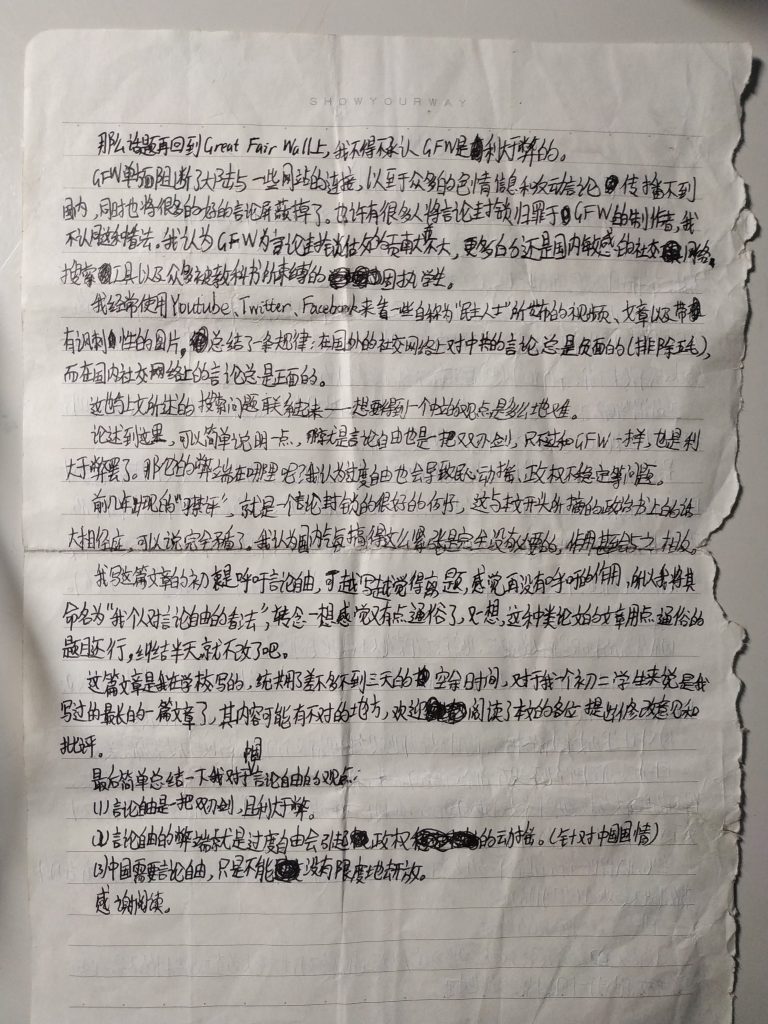 SHOWYOURWAY
那么话题再回到Great Fair Wall上,我不得不承认GFW是利大于弊的。
GFW单方面阻断了大陆与一些网站的连接,以至于众多的色情信息和政动言论传播不到
国内,同时也将很多的好的言论屏蔽掉了。也许有很多人将言论封锁归罪于GFW的制作者,我
不认同这种看法。我认为GFW为言论封锁做的贡献不大,更多的分还是国内敏感的社交网络、
搜索工具以及众多被教科书所束缚的学生。
我经常使用Youtube、Twitter、Facebook来看一些自称为“民主人士”所发布的视频、文章以及带
有讽刺性的图片,总结了一条规律:在国外的社交网络上对中共的言论总是负面的(排除五毛),
而在国内社交网络上的言论总是正面的。
这也与上文所述的搜索问题联系起来——想要得到一个中立的观点是多么地难。
论述到这里,可以简单说明一点,那就是言论自由也是一把双刃剑,只不过和GFW一样,也是利
大于弊罢了。那它的弊端在哪里呢?我认为过度自由也会导致民心动摇、政权不稳定等问题。
前几年出现的“”,就是一个言论封锁的很好的例子,这与我开头所摘的政治书上的话
大相径庭,可以说完全矛盾了。我认为国内气氛搞得这么紧张是完全没有必要的,作用甚至与之相反。
我写这篇文章的初衷是呼吁言论自由,可越写越觉得离题,感觉再没有呼吁的作用,所以我将其
命名为“我个人对言论自由的看法”,转念一想感觉又有点通俗了,又想,这种类论文的文章用点通俗的
题目还行,纠结半天就不改了吧。
这篇文章是我在学校写的,统共用了差不多不到三天的空余时间,对于我一个初二学生来说是我
写过的最长的一篇文章了,其内容可能有不对的地方,欢迎阅读了本文的各位提出修改意见和
批评。
最后简单总结一下我对于中国言论自由的观点:
(1)言论自由是一把双刃剑,且利大于弊。
(2)言论自由的弊端就是过度自由会引起政权的动摇。(针对中国国情)
(3)中国需要言论自由,只是不能没有限度地开放。
感谢阅读。